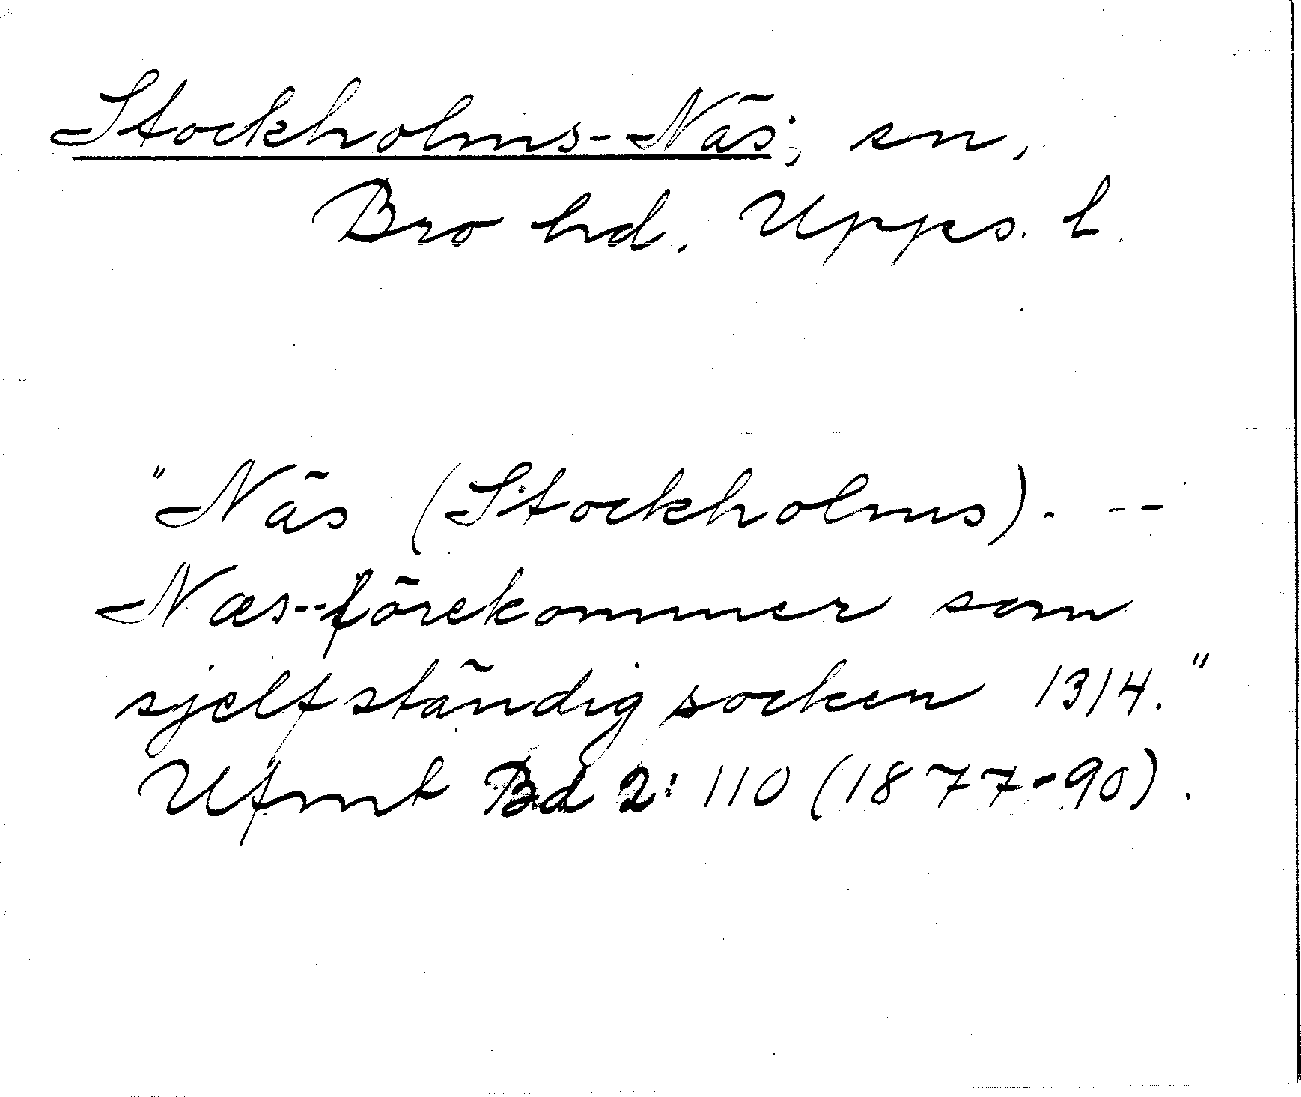 Stockholms-Näs, sn,
Bro hd. Upps. l.
"Näs (Stockholms). --
Næs--förekommer som
sjelfständig socken 1314."
Ufmt Bd 2: 110 (1877-90).